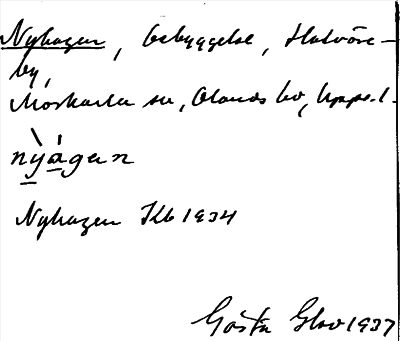 Nyhagen, bebyggelse, Halvöre-
by,
Morkarla sn, Olands hd, Upps. l.
nỳágan
Nyhagen Kb 1934
Gösta 1937